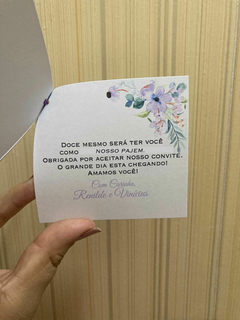 Doce mesmo será ter você
como nosso pajem.
Obrigada por aceitar nosso convite.
O grande dia esta chegando!
Amamos você!
Com Carinho,
Renilde e Vinícius